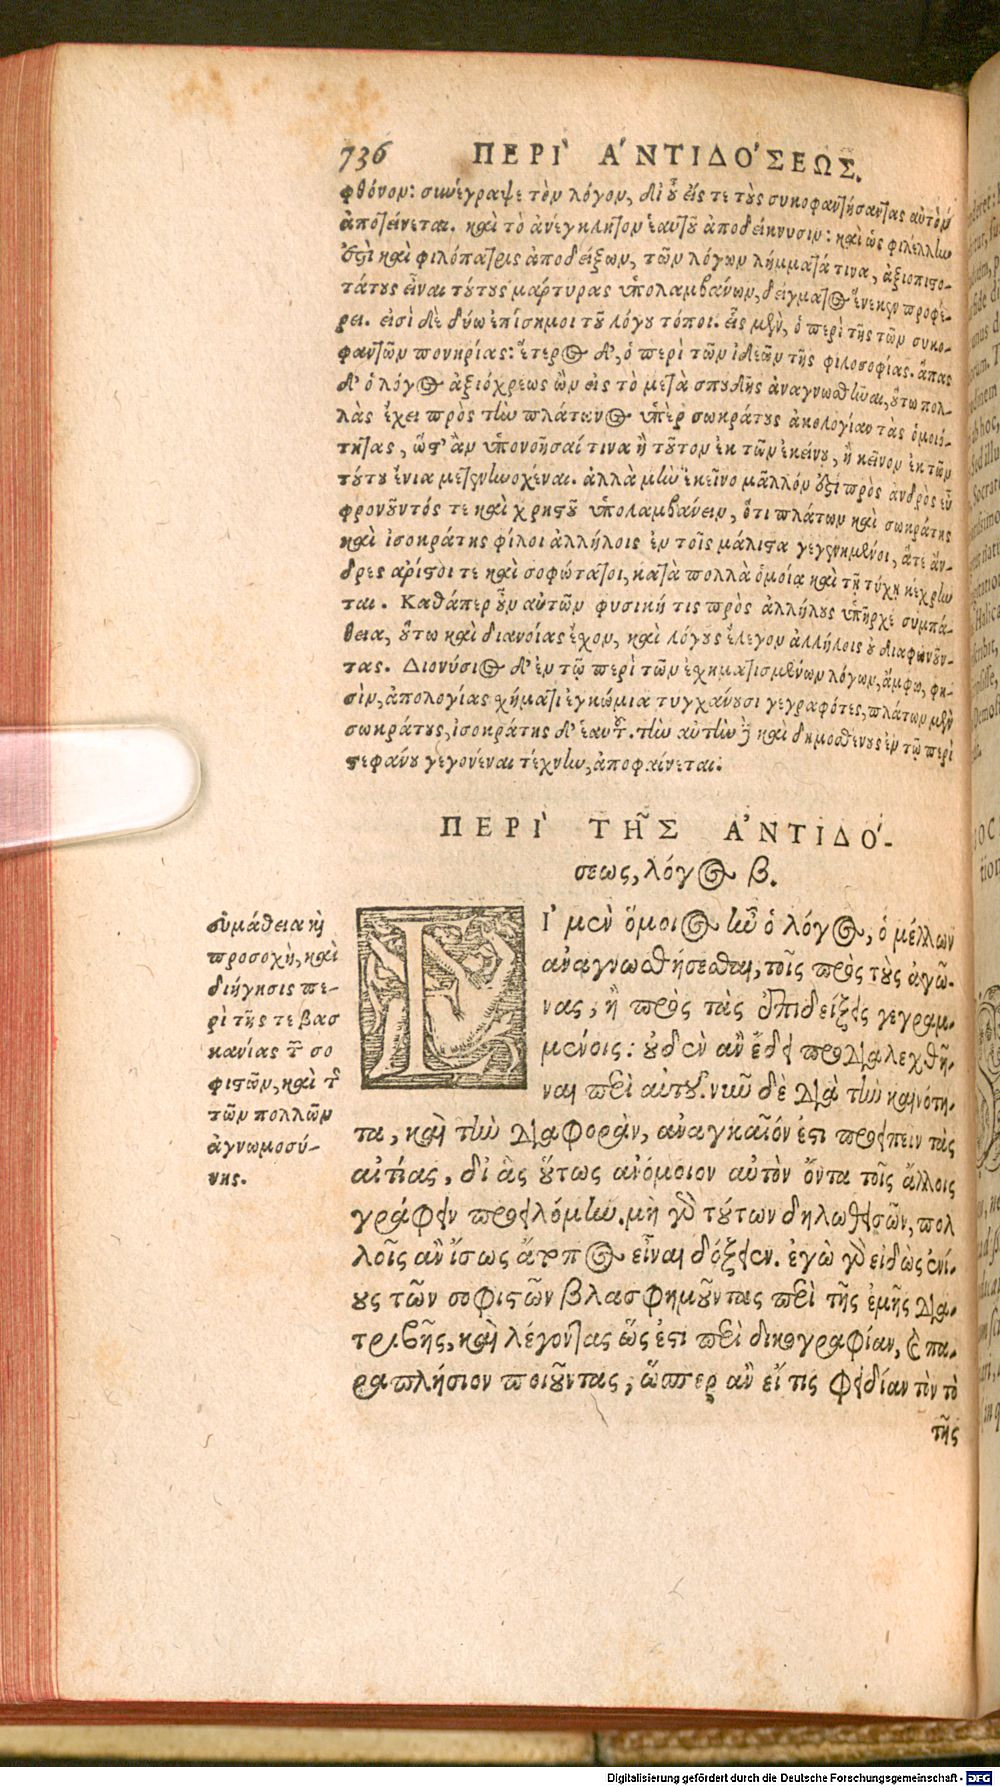 736 ΠΕΡΙ` Α᾿ΝΤΙΔΟ´ΣΕΩΣ.
φθόνον: συνέγραψε τὸν λόγον, δι οὗ εἴς τε τοὺς συκοφαντήσαντας αὐτὸν
ἀποτείνεται. καὶ τὸ ἀνέγκλητον ἑαυτοῦ ἀποδείκνυσιν: καὶ ὡς φιλέλλην
ἐστὶ καὶ φιλόπατρις ἀποδείξων, τῶν λόγων λήμματά τινα, ἀξιοπιστο-
τάτους εἶναι τούτους μάρτυρας ὑπολαμβάνων, δείγματος ἕνεκεν προφέ-
ρει. εἰσὶ δὲ δύω ἐπίσημοι τοῦ λόγου τόποι. εἷς μὲν, ὁ περὶ τῆς τῶν συκο-
φαντῶν πονηρίας: ἕτερος δ', ὁ περὶ τῶν ἰδεῶν τῆς φιλοσοφίας. ἅπας
δ' ὁ λόγος ἀξιόχρεως ὢν εἰς τὸ μετὰ σπουδῆς ἀναγνωσθῆναι, οὕτω πολ-
λὰς ἔχει πρὸς τὴν πλάτωνος ὑπὲρ σωκράτους ἀπολογίαν τὰς ὁμοιό-
τητας, ὥστ' ἂν ὑπονοῆσαί τινα ἢ τοῦτον ἐκ τῶν ἐκείνου, ἢ κεῖνον ἐκ τῶν
τούτου ἔνια μετενηνοχέναι. ἀλλὰ μὴν ἐκεῖνο μᾶλλόν ἐστι πρὸς ἀνδρὸς εὖ
φρονοῦντός τε καὶ χρηστοῦ ὑπολαμβάνειν, ὅτι πλάτων καὶ σωκράτης
καὶ ἰσοκράτης φίλοι ἀλλήλοις ἐν τοῖς μάλιστα γεγενημένοι, ἅτε ἄν-
δρες ἄριστοι τε καὶ σοφώτατοι, κατὰ πολλὰ ὁμοίᾳ καὶ τῇ τύχῃ κέχρην
ται. Καθάπερ οὖν αὐτῶν φυσική τις πρὸς ἀλλήλους ὑπῆρχε συμπά-
θεια, οὕτω καὶ διανοίας ἔχον, καὶ λόγους ἔλεγον ἀλλήλοις οὐ διαφωνοῦν-
τας. Διονύσιος δ' ἐν τῷ περὶ τῶν ἐσχηματισμένων λόγων, ἄμφω, φη-
σὶν, ἀπολογίας σχήματι ἐγκώμια τυγχάνουσι γεγραφότες, πλάτων μὲν
σωκράτους, ἰσοκράτης δ' ἑαυτοῦ. τὴν αὐτὴν δὲ καὶ δημοσθένους ἐν τῷ περὶ
στεφάνου γεγονέναι τέχνην, ἀποφαίνεται.
ΠΕΡΙ` ΤΗ͂Σ Α᾿ΝΤΙΔΟ´-
σεως, λόγος β.
συμάθεια καὶ
προσοχὴ, καὶ
διήγησις πε-
ρὶ τῆς τε βασ
κανίας τῶν σο
φιστῶν, καὶ τῆς
τῶν πολλῶν
ἀγνωμοσύ-
νης.
ΕΙ᾿ μὲν ὅμοιος ἦν ὁ λόγος, ὁ μέλλων
ἀναγνωσθήσεσθαι, τοῖς πρὸς τοὺς ἀγῶ-
νας, ἢ πρὸς τὰς ἐπιδείξεις γεγραμ-
μένοις: οὐδὲν ἂν ἔδει προδιαλεχθῆ-
ναι περὶ αὐτοῦ. νῦν δὲ διὰ τὴν καινότη-
τα, καὶ τὴν διαφορὰν, ἀναγκαῖόν ἐστι προειπεῖν τὰς
αἰτίας, δι ἃς οὕτως ἀνόμοιον αὐτὸν ὄντα τοῖς ἄλλοις
γράφειν προειλόμην. μὴ γὰρ τούτων δηλωθεισῶν, πολ
λοῖς ἂν ἴσως ἄτοπος εἶναι δόξειεν. ἐγὼ γὰρ εἰδὼς ἐνί-
ους τῶν σοφιστῶν βλασφημοῦντας περὶ τῆς ἐμῆς δια-
τριβῆς, καὶ λέγοντας ὥς ἐστι περὶ δικογραφίαν, καὶ πα-
ραπλήσιον ποιοῦντας, ὥσπερ ἂν εἴ τις φειδίαν τὸν τὸ
τῆς
Digitalisierung gefördert durch die Deutsche Forschungsgemeinschaft - DFG